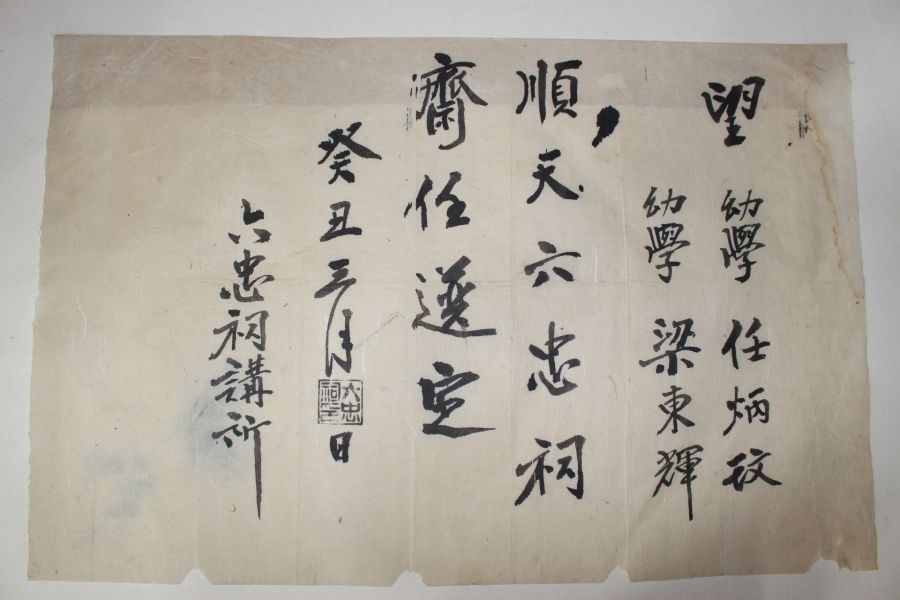 望 幼學 任炳玟
幼學 梁東輝
順天六忠祠
齋任選定
癸丑三月 日
六忠祠講所
六忠祠印